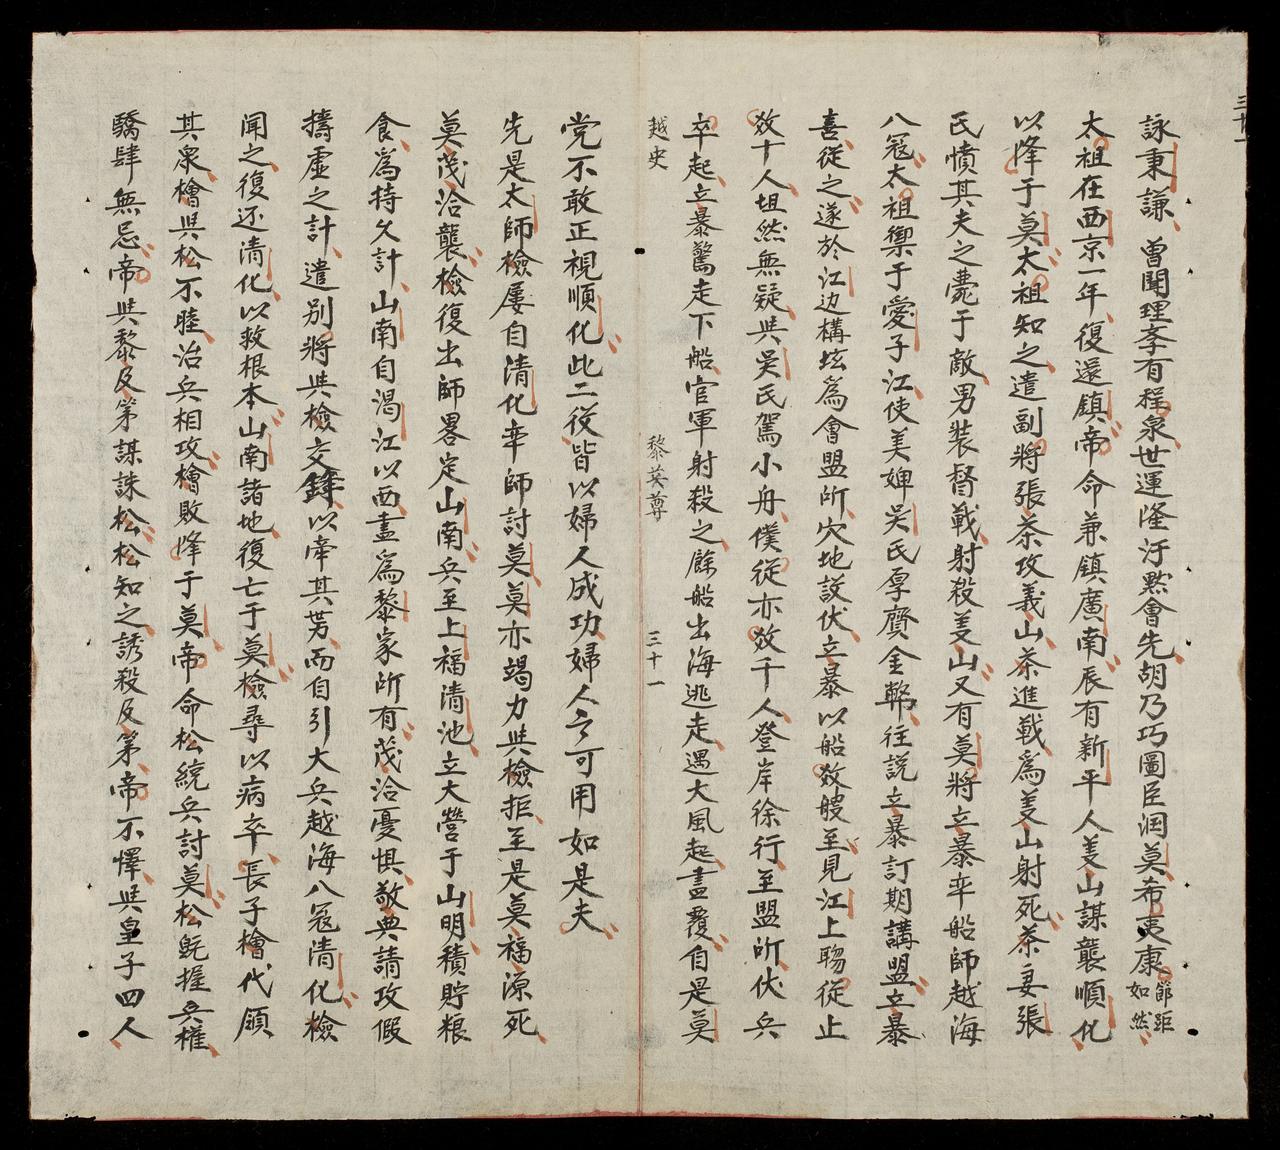 詠秉謙曽聞理孝有程泉世運隆汙黙會先胡乃巧圖臣潤莫希夷康節距如然
太祖在西京一年復還鎮帝命兼鎮廣南辰有新平人美山謀襲順化
以降于莫太祖知之遣副將張茶攻義山茶進戰為美山射死茶妻張
氏憤其夫之薨于敵男裝督戰射殺美山又有莫將立暴率船師越海
入寇太祖禦于愛子江使美婢吳氏厚賫金幣往説立暴訂期講盟立暴
喜從之遂於江边構坛為會盟所穴地設伏立暴以船数艘至見江上驺從止
数十人坦然無疑與吴民駕小舟僕從亦数千人登岸徐行至盟所伏兵
卒起立暴驚走下船官軍射殺之餘船出海逃走遇大風起盡覆自是莫
越史 黎英尊 三十一
党不敢正視順化此二役皆以婦人成功婦人之可用如是夫
先是太師檢屡自清化率師討莫莫亦竭力與檢拒至是莫福源死
莫茂洽襲檢復出師畧定山南兵至上福清池立大營于山明積貯粮
食為持久計山南自渴江以西盡為黎家所有茂洽憂惧敬典請攻假
擣虛之計遣别將與檢交鋒以牽其势而自引大兵越海入寇清化檢
聞之復还清化以救根本山南諸地復亡于莫檢尋以病卒長子檜代領
其衆檜與松不睦治兵相攻檜敗降于莫帝命松統兵討莫松既握兵權
驕肆無忌帝與黎及第謀誅松松知之誘殺及第帝不懌與皇子四人